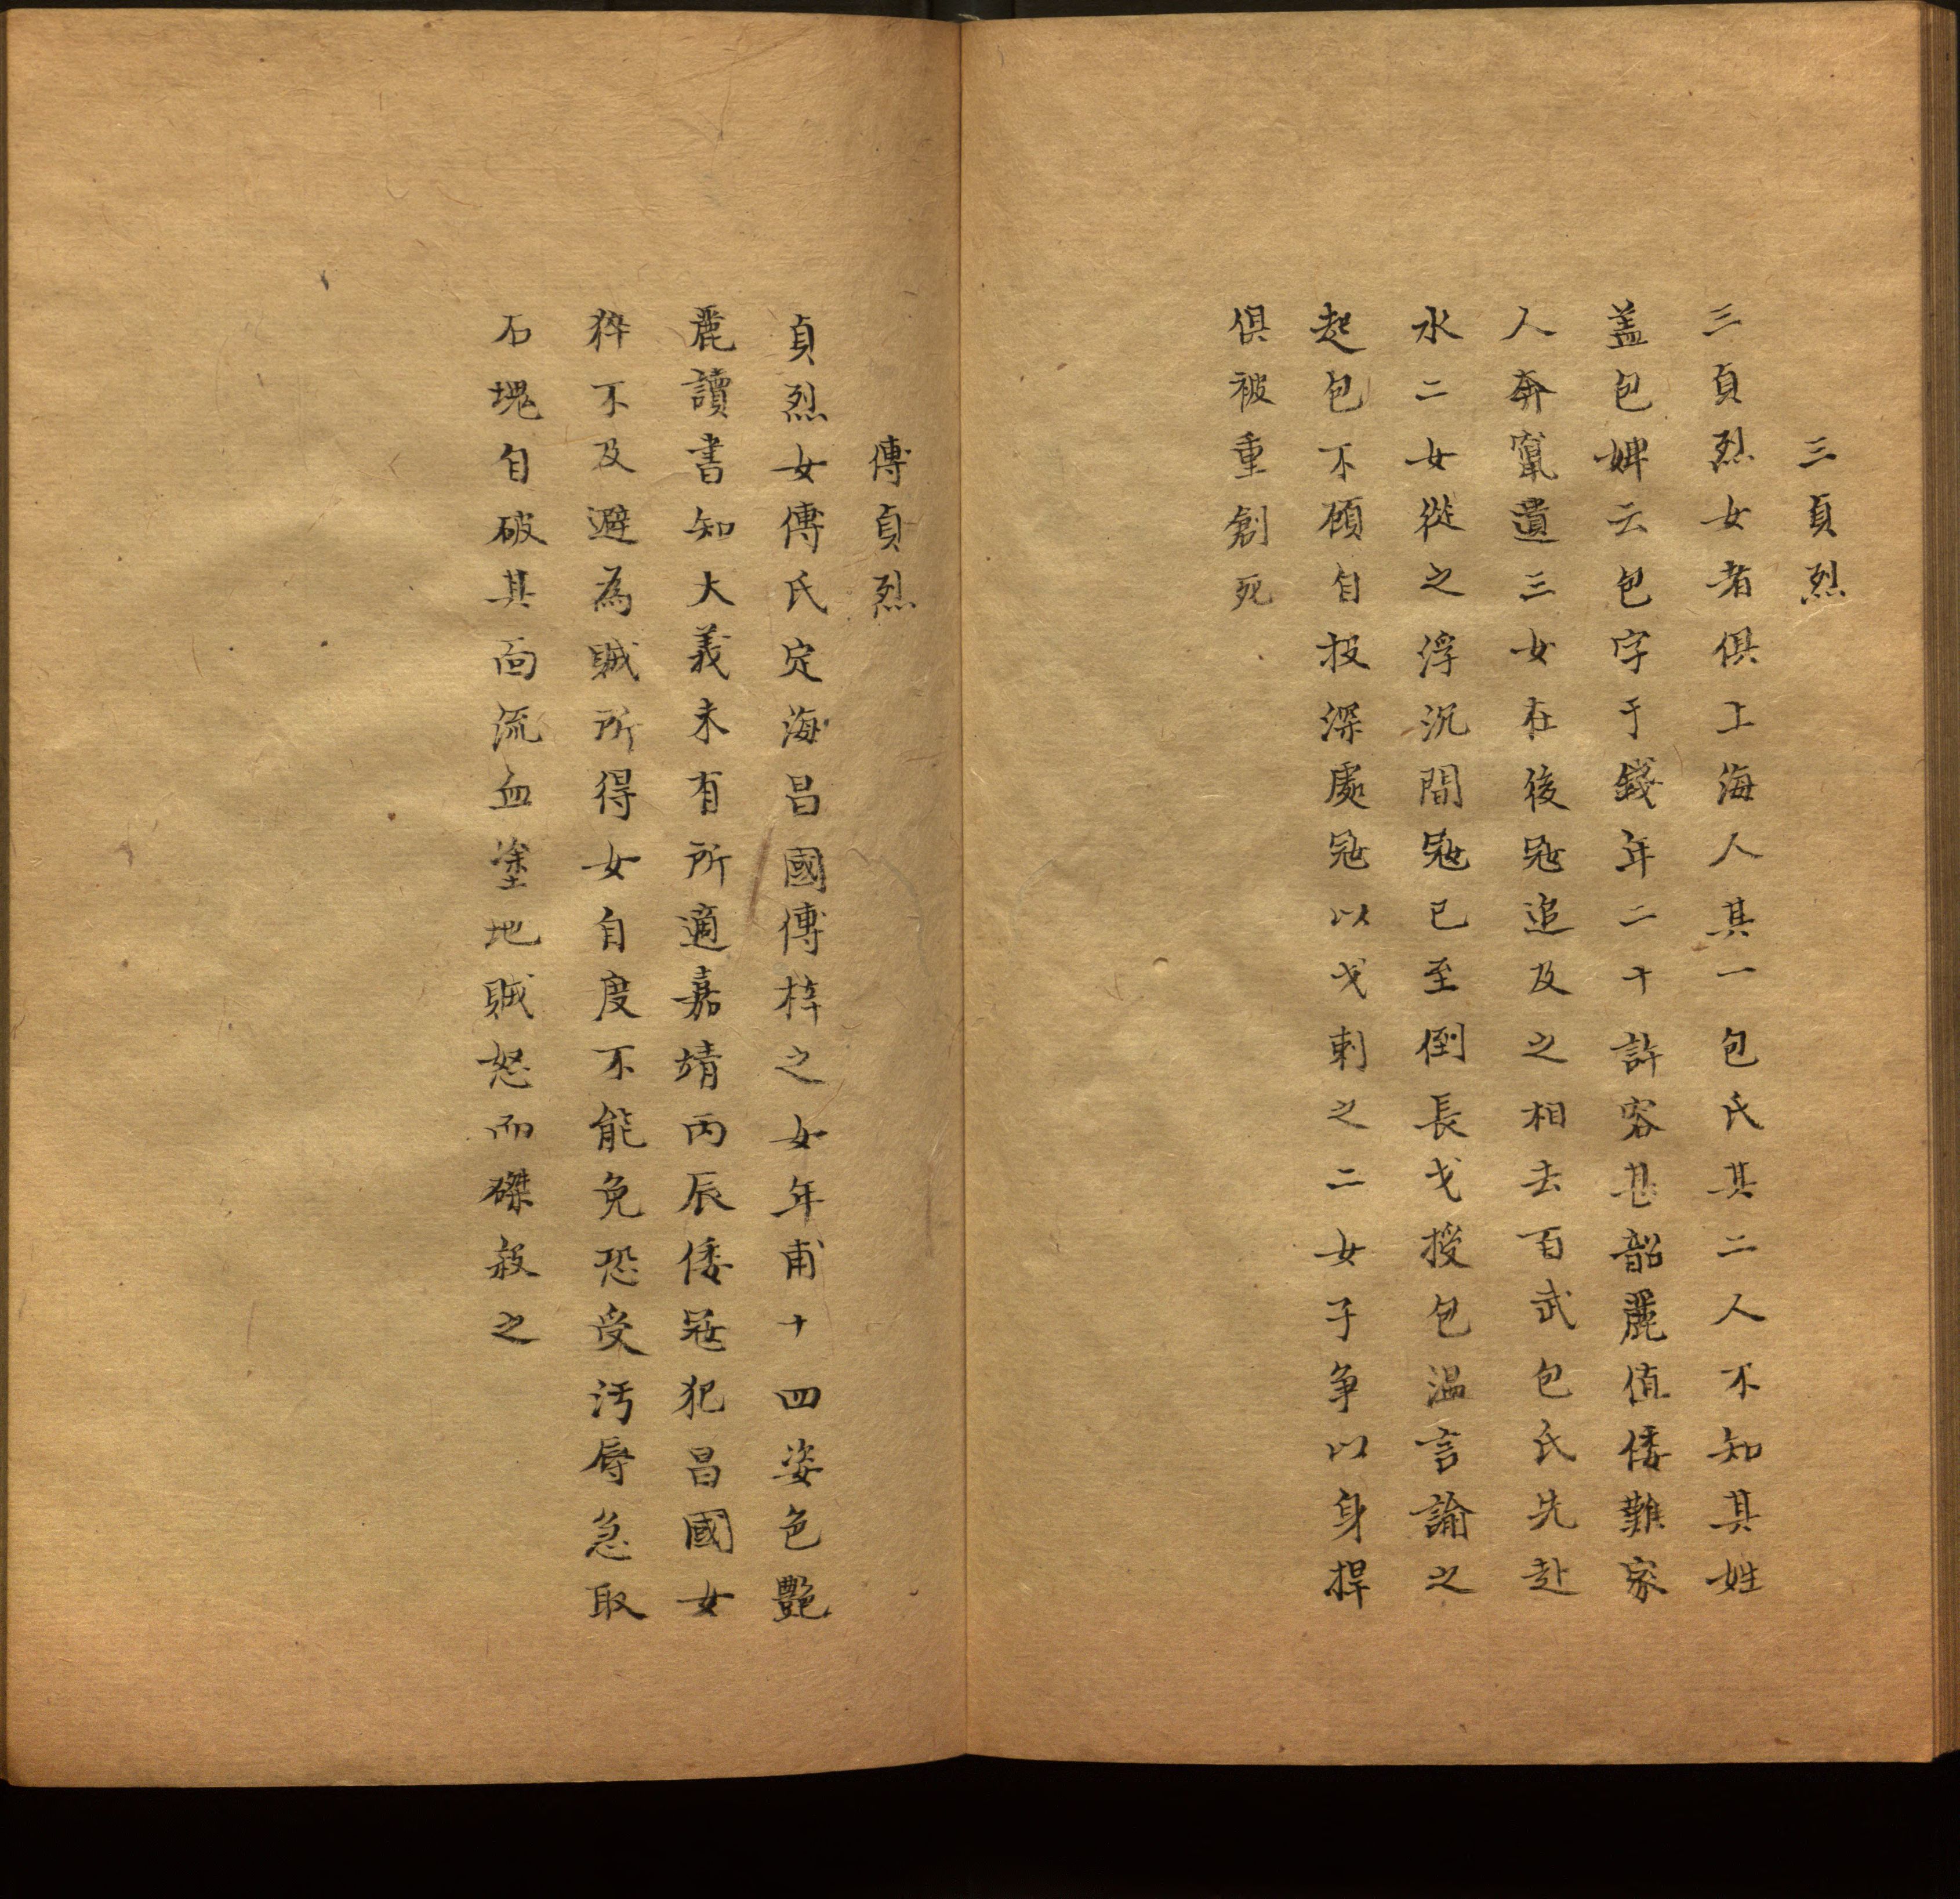 三貞烈
三貞烈女者俱上海人其一包氏其二人不知其姓
盖包婢云包字于錢年二十許容甚韶麗值倭難家
人奔竄遺三女在後寇追及之相去百武包氏先赴
水二女從之浮沉間寇已至倒長戈授包溫言諭之
起包不顧自投深處寇以戈刺之二女子争以身捍
俱被重創死
傅貞烈
貞烈女傅氏定海昌國傅梓之女年甫十四姿色艷
麗讀書知大義未有所適嘉靖丙辰倭寇犯昌國女
猝不及避為賊所得女自度不能免恐受污辱急取
石塊自破其面流血塗地賊怒而磔殺之